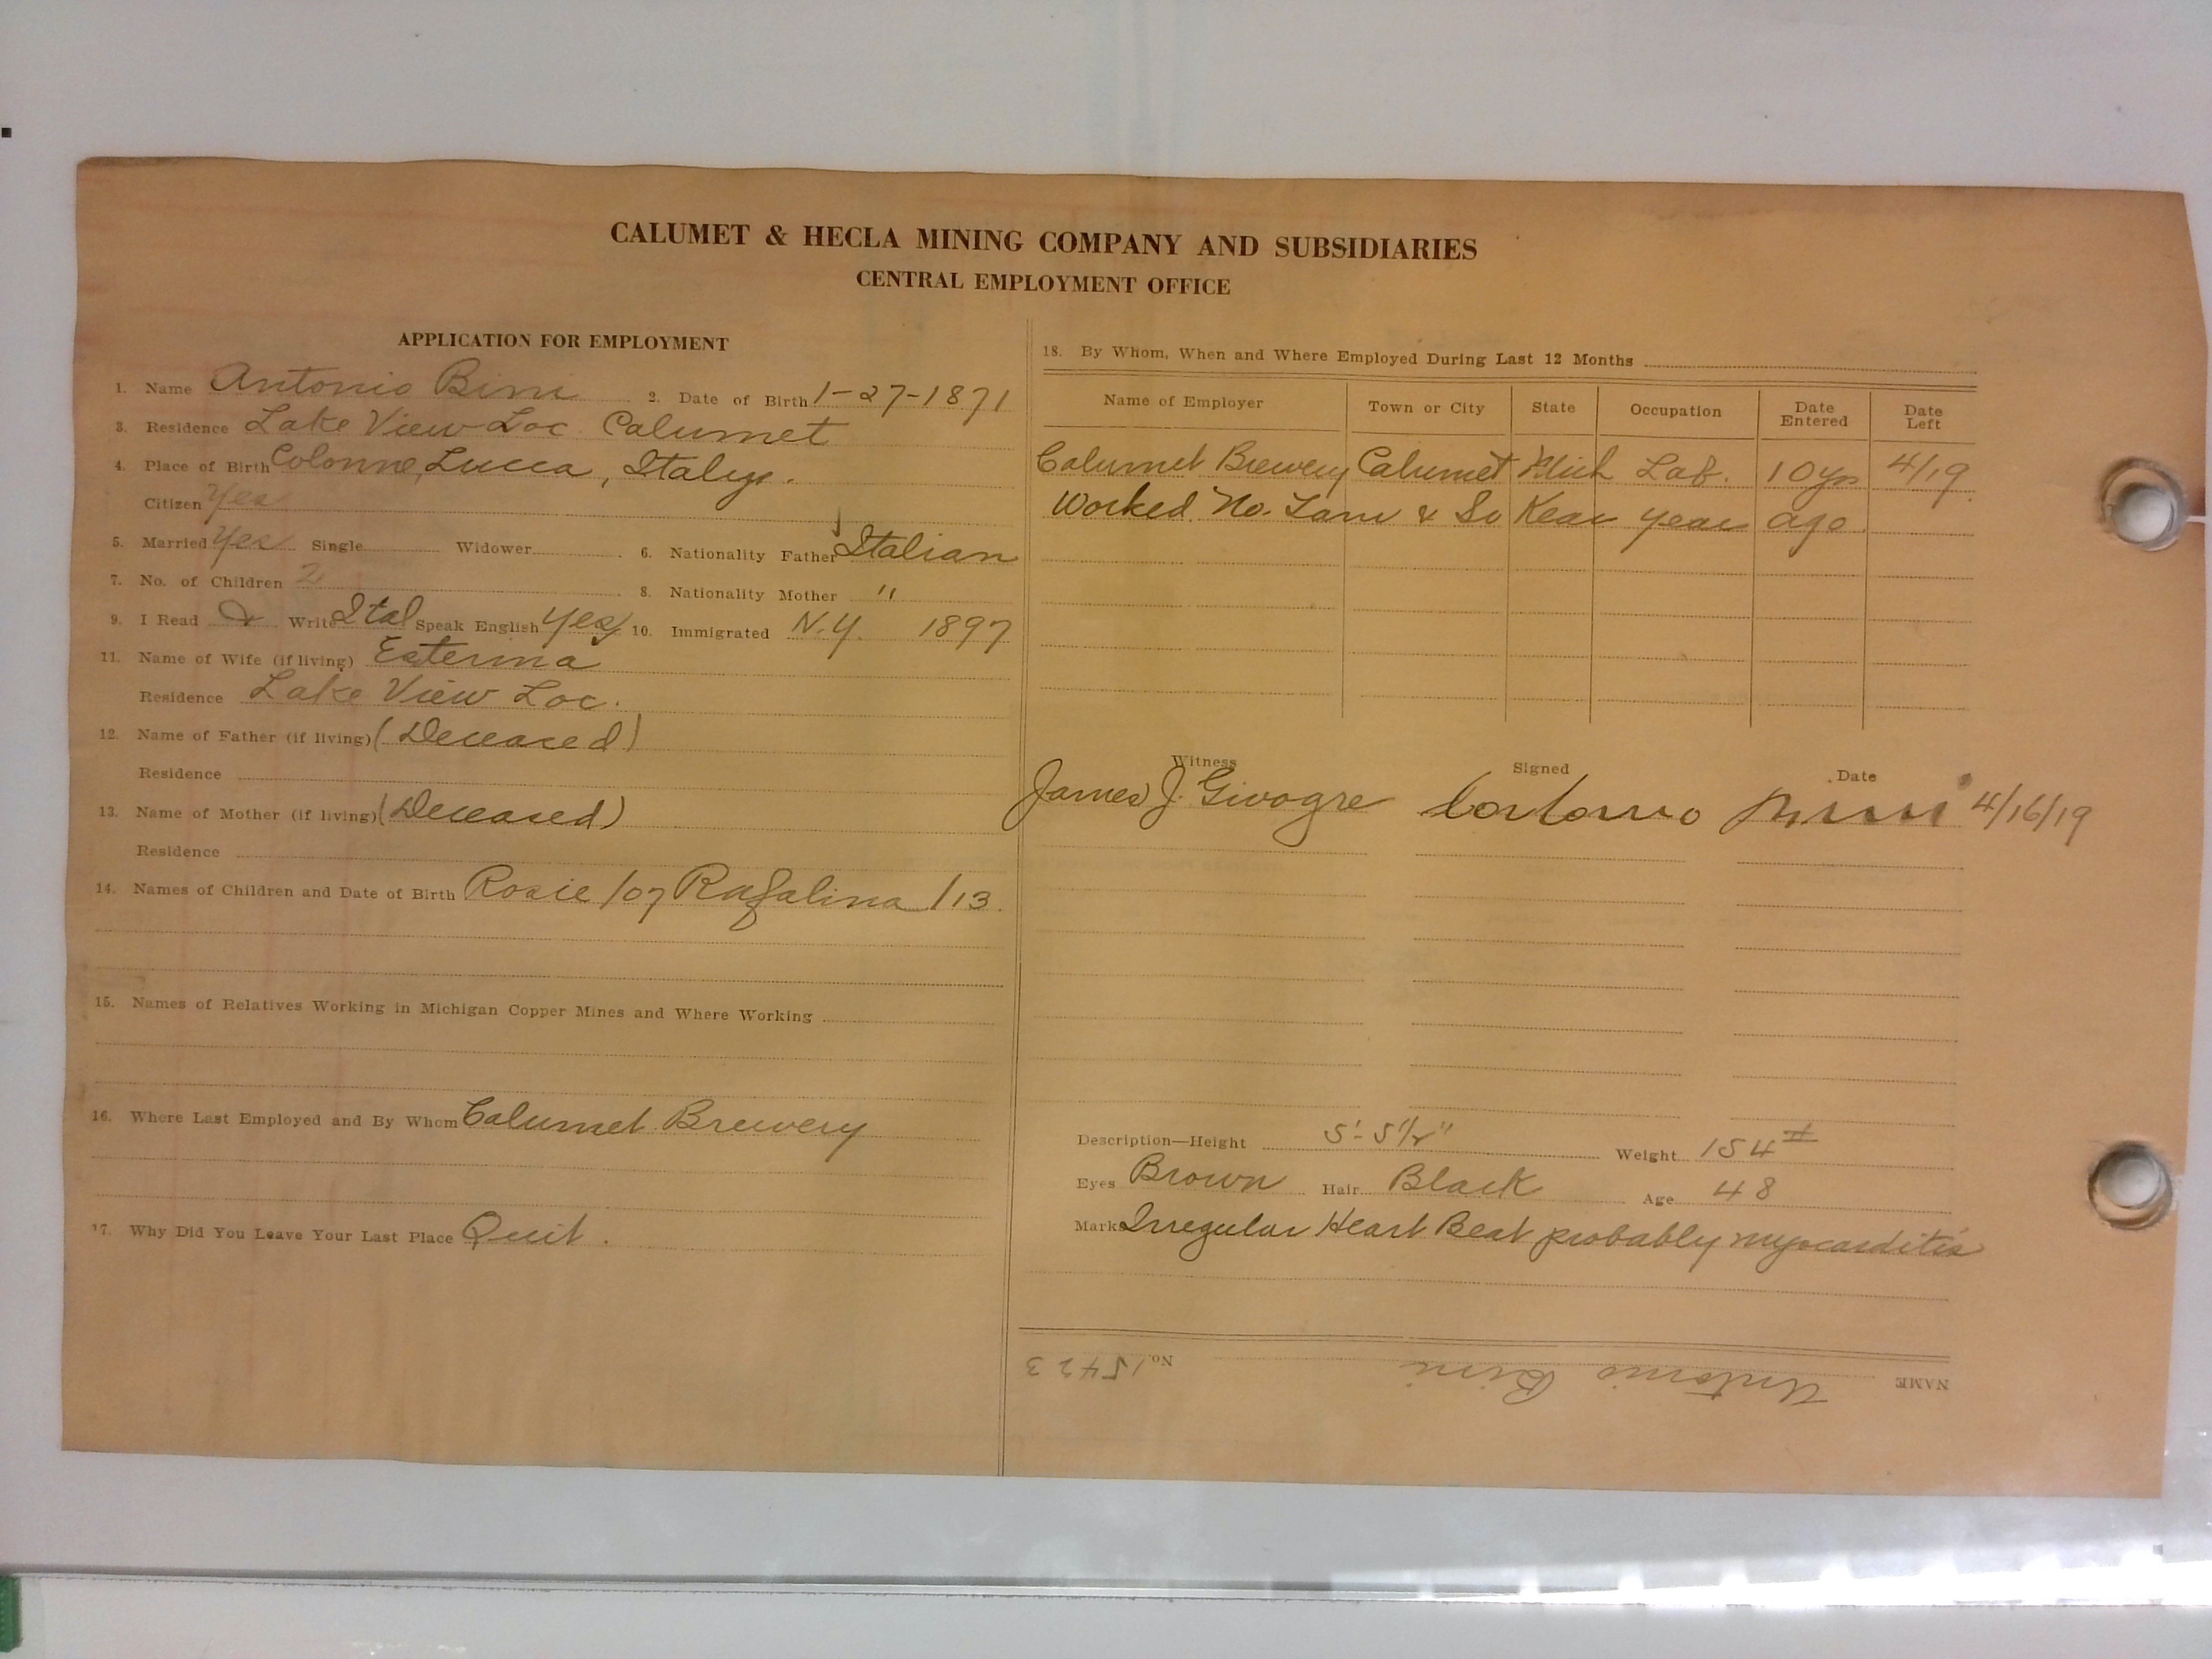 CALUMET & HECLA MINING COMPANY AND SUBSIDIARIES
CENTRAL EMPLOYMENT OFFICE
APPLICATION FOR EMPLOYMENT
1. Name Antonio Bini 2. Date of Birth 1-27-1871
3. Residence Lake View Loc. Calumet
4. Place of Birth Colonne, Lucca, Italy.
Citizen Yes
5. Married Yes Single Widower 6. Nationality Father Italian
7. No. of Children 2 8. Nationality Mother "
9. I Read & Write Ital Speak English Yes 10. Immigrated N.Y. 1897
11. Name of Wife (if living) Esterina
Residence Lake View Loc.
12. Name of Father (if living) (Deceased)
Residence
13. Name of Mother (if living) (Deceased)
Residence
14. Names of Children and Date of Birth Rosie /07 Rafalina /13.
15. Names of Relatives Working in Michigan Copper Mines and Where Working
16. Where Last Employed and By Whom Calumet Brewery
17. Why Did You Leave Your Last Place Quit.
18. By Whom, When and Where Employed During Last 12 Months
Name of Employer Town or City State Occupation Date Entered Date Left
Calumet Brewery Calumet Mich Lab. 10 yrs 4/19
Worked No. Tam & So Kear years ago.
Witness Signed Date
James J. Givogre Antonio Bini 4/16/19
Description—Height 5'-5 1/2" Weight 154 #
Eyes Brown Hair Black Age 48
Marks Irregular Heart Beat probably myocarditis
NAME Antonio Bini No. 15423